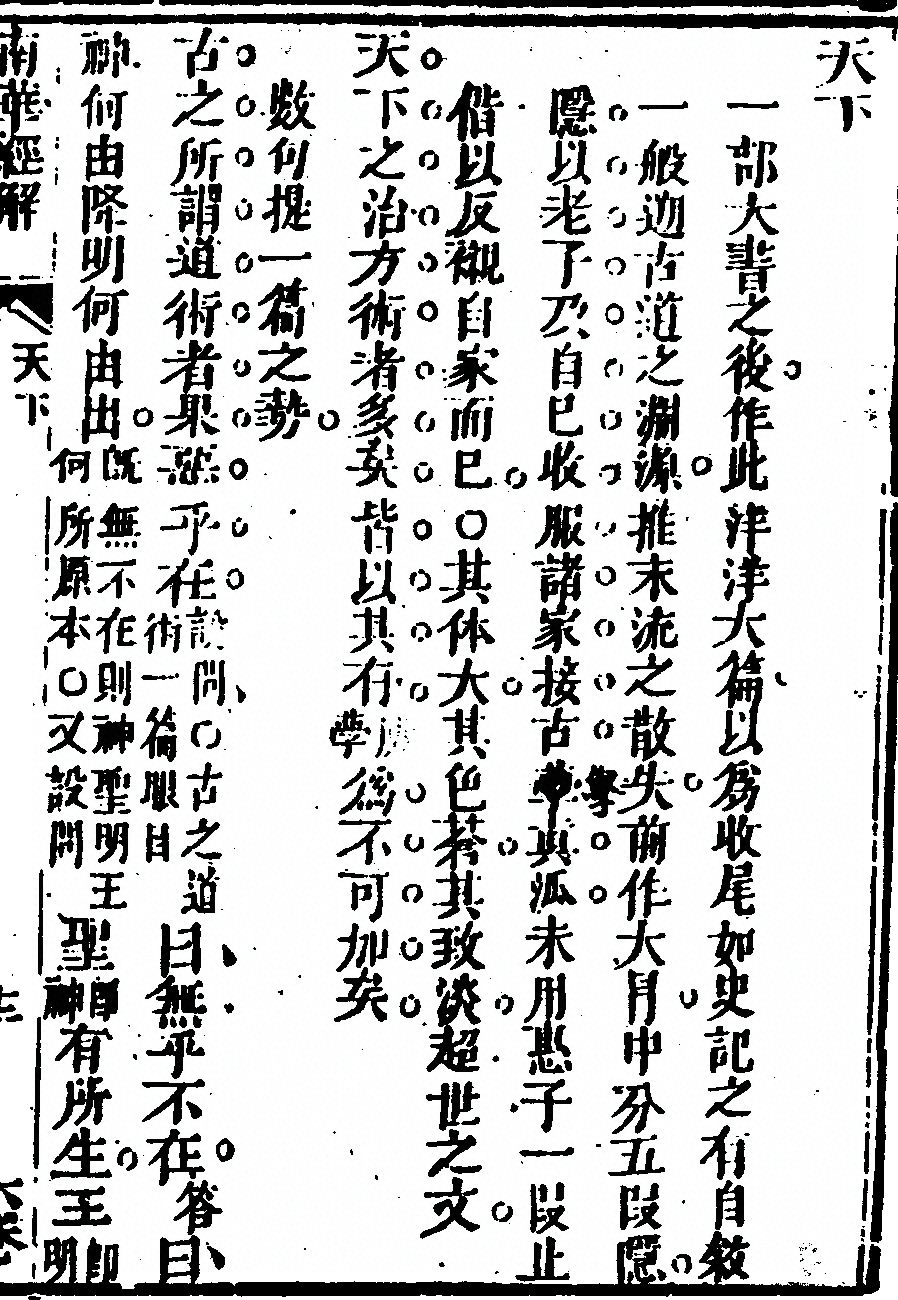 天下
一部大書之後作此洋洋大篇以為收尾如史記之有自敘
一般遡古道之淵源推末流之散失前作大冒中分五段隱
隱以老子及自已收服諸家接古學真派末用惠子一段止
借以反襯自家而已〇其体大其色蒼其致淡超世之文
天下之治方術者多矣皆以其有所學為不可加矣
數句提一篇之勢
古之所謂道術者果惡乎在設問〇古之道術一篇眼目曰無乎不在答曰
神何由降明何由出既無不在則神聖明王何所原本〇又設問聖即神有所生王即明
南華經解 天下